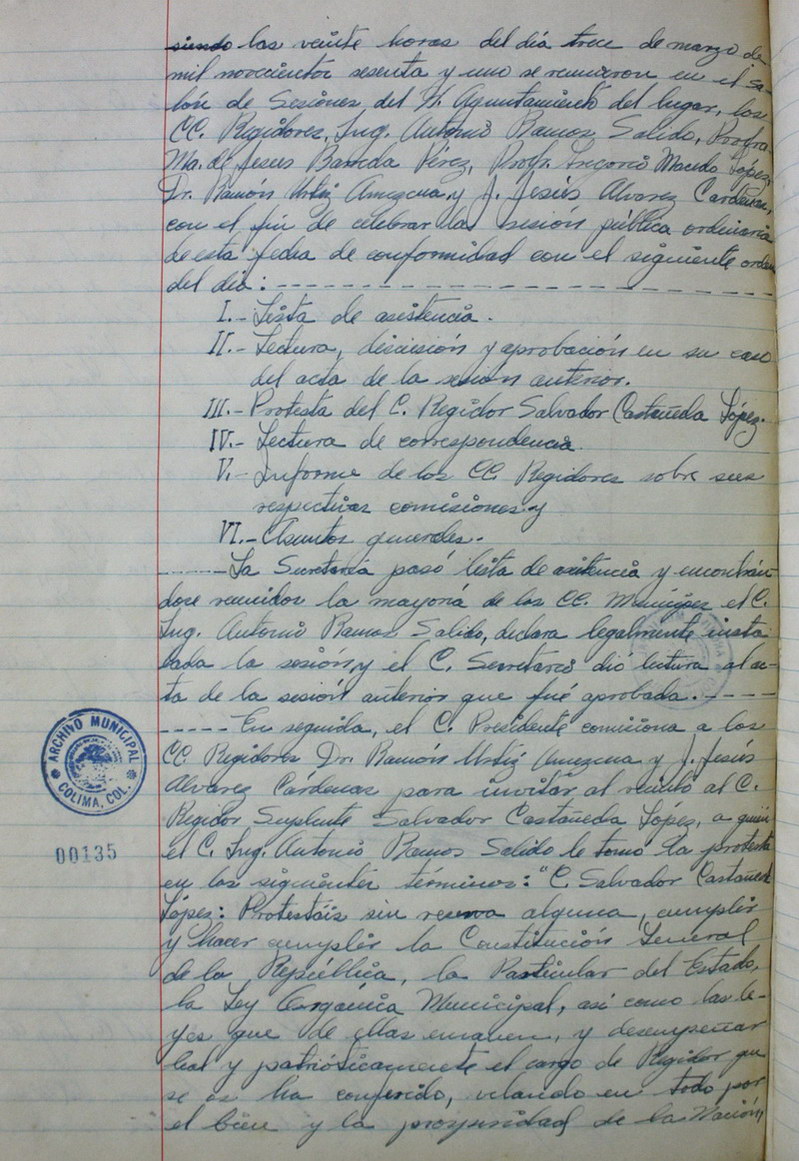 siendo las veinte horas del día trece de marzo de
mil novecientos sesenta y uno se reunieron en el Sa-
lón de Sesiones del H. Ayuntamiento del lugar, los
CC. Regidores, Ing. Antonio Ramos Salido, Profra.
Ma. de Jesús Barreda Pérez, Profr. Gregorio Macedo López,
Dr. Ramón Urtiz Amezcua y J. Jesús Alvarez Cárdenas,
con el fin de celebrar la sesión pública ordinaria
de esta fecha de conformidad con el siguiente orden
del día: - - - - - - - - - - - - - - - - - -
I.- Lista de asistencia.
II.- Lectura, discusión y aprobación en su caso
del acta de la sesión anterior.
III.- Protesta del C. Regidor Salvador Castañeda López.
IV.- Lectura de correspondencia.
V.- Informe de los CC. Regidores sobre sus
respectivas comisiones y
VI.- Asuntos generales.-
- - - - - La Secretaría pasó lista de asistencia y encontrán
dose reunidos la mayoría de los CC. Munícipes el C.
Ing. Antonio Ramos Salido, declara legalmente insta
lada la sesión, y el C. Secretario dió lectura al ac-
ta de la sesión anterior que fué aprobada. - - - - -
- - - - - En seguida, el C. Presidente comisiona a los
CC. Regidores Dr. Ramón Urtiz Amezcua y J. Jesús
Alvarez Cárdenas para invitar al recinto al C.
Regidor Suplente Salvador Castañeda López, a quien
el C. Ing. Antonio Ramos Salido le tomó la protesta
en los siguientes términos: "C. Salvador Castañeda
López: Protestáis sin reserva alguna, cumplir
y hacer cumplir la Constitución General
de la República, la Particular del Estado,
la Ley Orgánica Municipal, así como las le-
yes que de ellas emanen, y desempeñar
leal y patrióticamente el cargo de Regidor que
se os ha conferido, velando en todo por
el bien y la prosperidad de la Nación,
ARCHIVO MUNICIPAL
COLIMA, COL.
00135